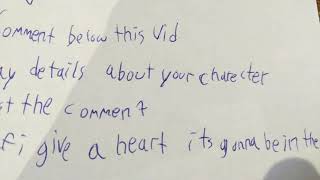 omment below this vid
ay details about your charecter
st the comment
f i give a heart its gonna be in the